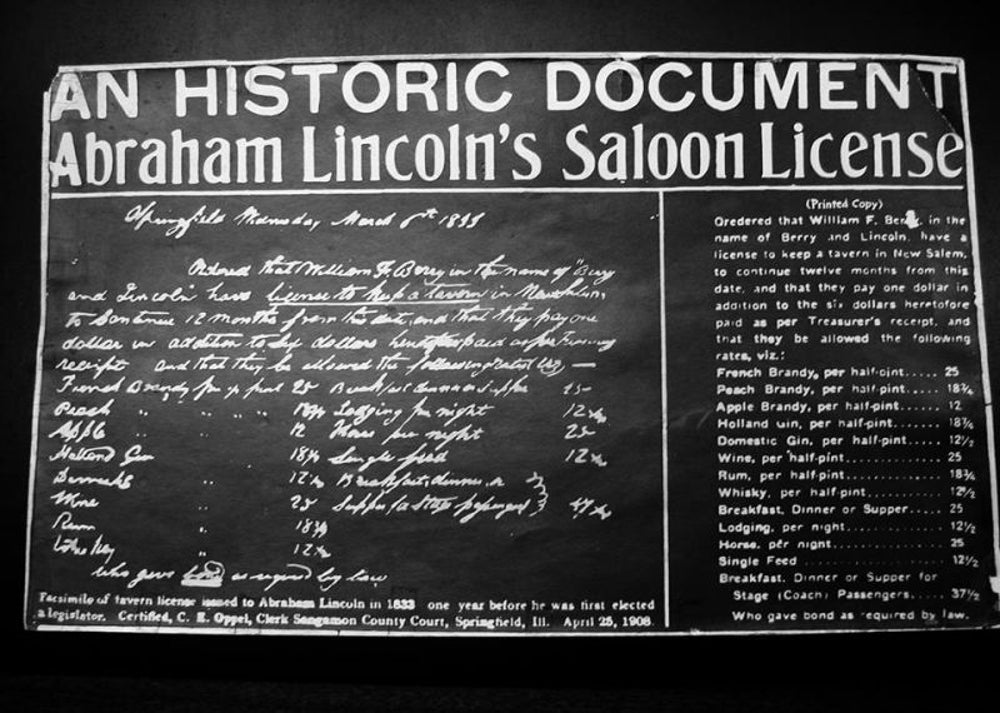 AN HISTORIC DOCUMENT
Abraham Lincoln's Saloon License
Springfield Wednesday March 6th 1833
Ordered that William F. Berry in the name of "Berry
and Lincoln" have license to keep a tavern in New Salem,
to continue 12 months from this date, and that they pay one
dollar in addition to six dollars heretofore paid as per Treasury
receipt and that they be allowed the following rates viz, —
French Brandy per ½ pint 25 Breakfast dinner or supper 25
Peach " " " " 18¾ Lodging per night 12½
Apple " " 12 Horse per night 25
Holland Gin " 18¾ Single feed 12½
Domestic " 12½ Breakfast, dinner, or
Wine " 25 Supper for Stage passengers 37½
Rum " 18¾
Whiskey " 12½
Who gave bond as required by law
Facsimile of tavern license issued to Abraham Lincoln in 1833 one year before he was first elected
a legislator. Certified, C. E. Oppel, Clerk Sangamon County Court, Springfield, Ill. April 25, 1908
(Printed Copy)
Oredered that William F. Berry, in the
name of Berry and Lincoln, have a
license to keep a tavern in New Salem,
to continue twelve months from this
date, and that they pay one dollar in
addition to the six dollars heretofore
paid as per Treasurer's receipt, and
that they be allowed the following
rates, viz.:
French Brandy, per half-pint..... 25
Peach Brandy, per half-pint...... 18¾
Apple Brandy, per half-pint...... 12
Holland Gin, per half-pint....... 18¾
Domestic Gin, per half-pint...... 12½
Wine, per half-pint.............. 25
Rum, per half-pint............... 18¾
Whisky, per half-pint............ 12½
Breakfast, Dinner or Supper..... 25
Lodging, per night............... 12½
Horse, per night................. 25
Single Feed ..................... 12½
Breakfast, Dinner or Supper for
Stage (Coach) Passengers..... 37½
Who gave bond as required by law.